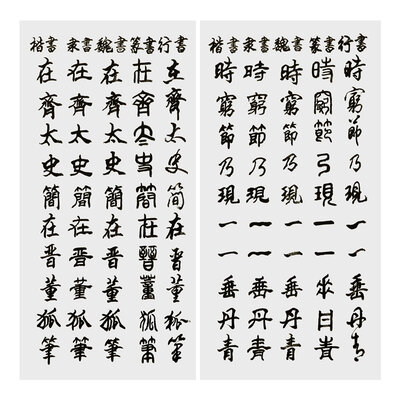 行書 時窮節乃現一一垂丹青
篆書 時窮節乃現一一垂丹青
魏書 時窮節乃現一一垂丹青
隶書 時窮節乃現一一垂丹青
楷書 時窮節乃現一一垂丹青
行書 在齊太史简在晋董狐筆
篆書 在齊太史簡在晉董狐筆
魏書 在齊太史簡在晋董狐筆
隶書 在齊太史簡在晋董狐筆
楷書 在齊太史簡在晋董狐筆